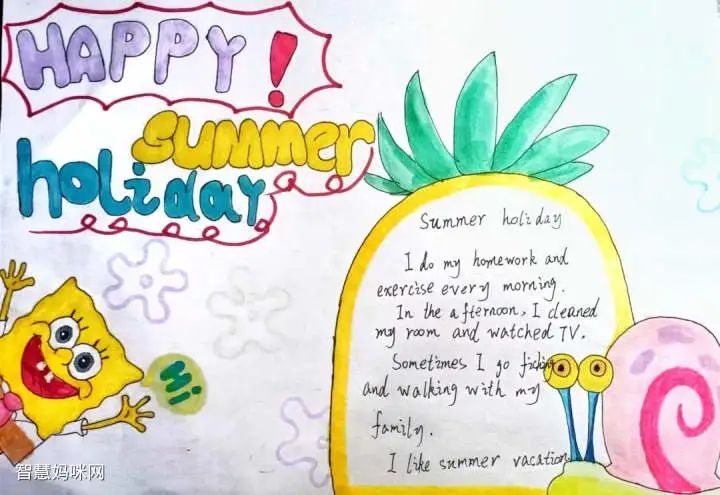 HAPPY!
summer
holiday
Summer holiday
I do my homework and
exercise every morning.
In the afternoon, I cleaned
my room and watched TV.
Sometimes I go
and walking with my
family.
I like summer vacation
Hi
智慧妈咪网